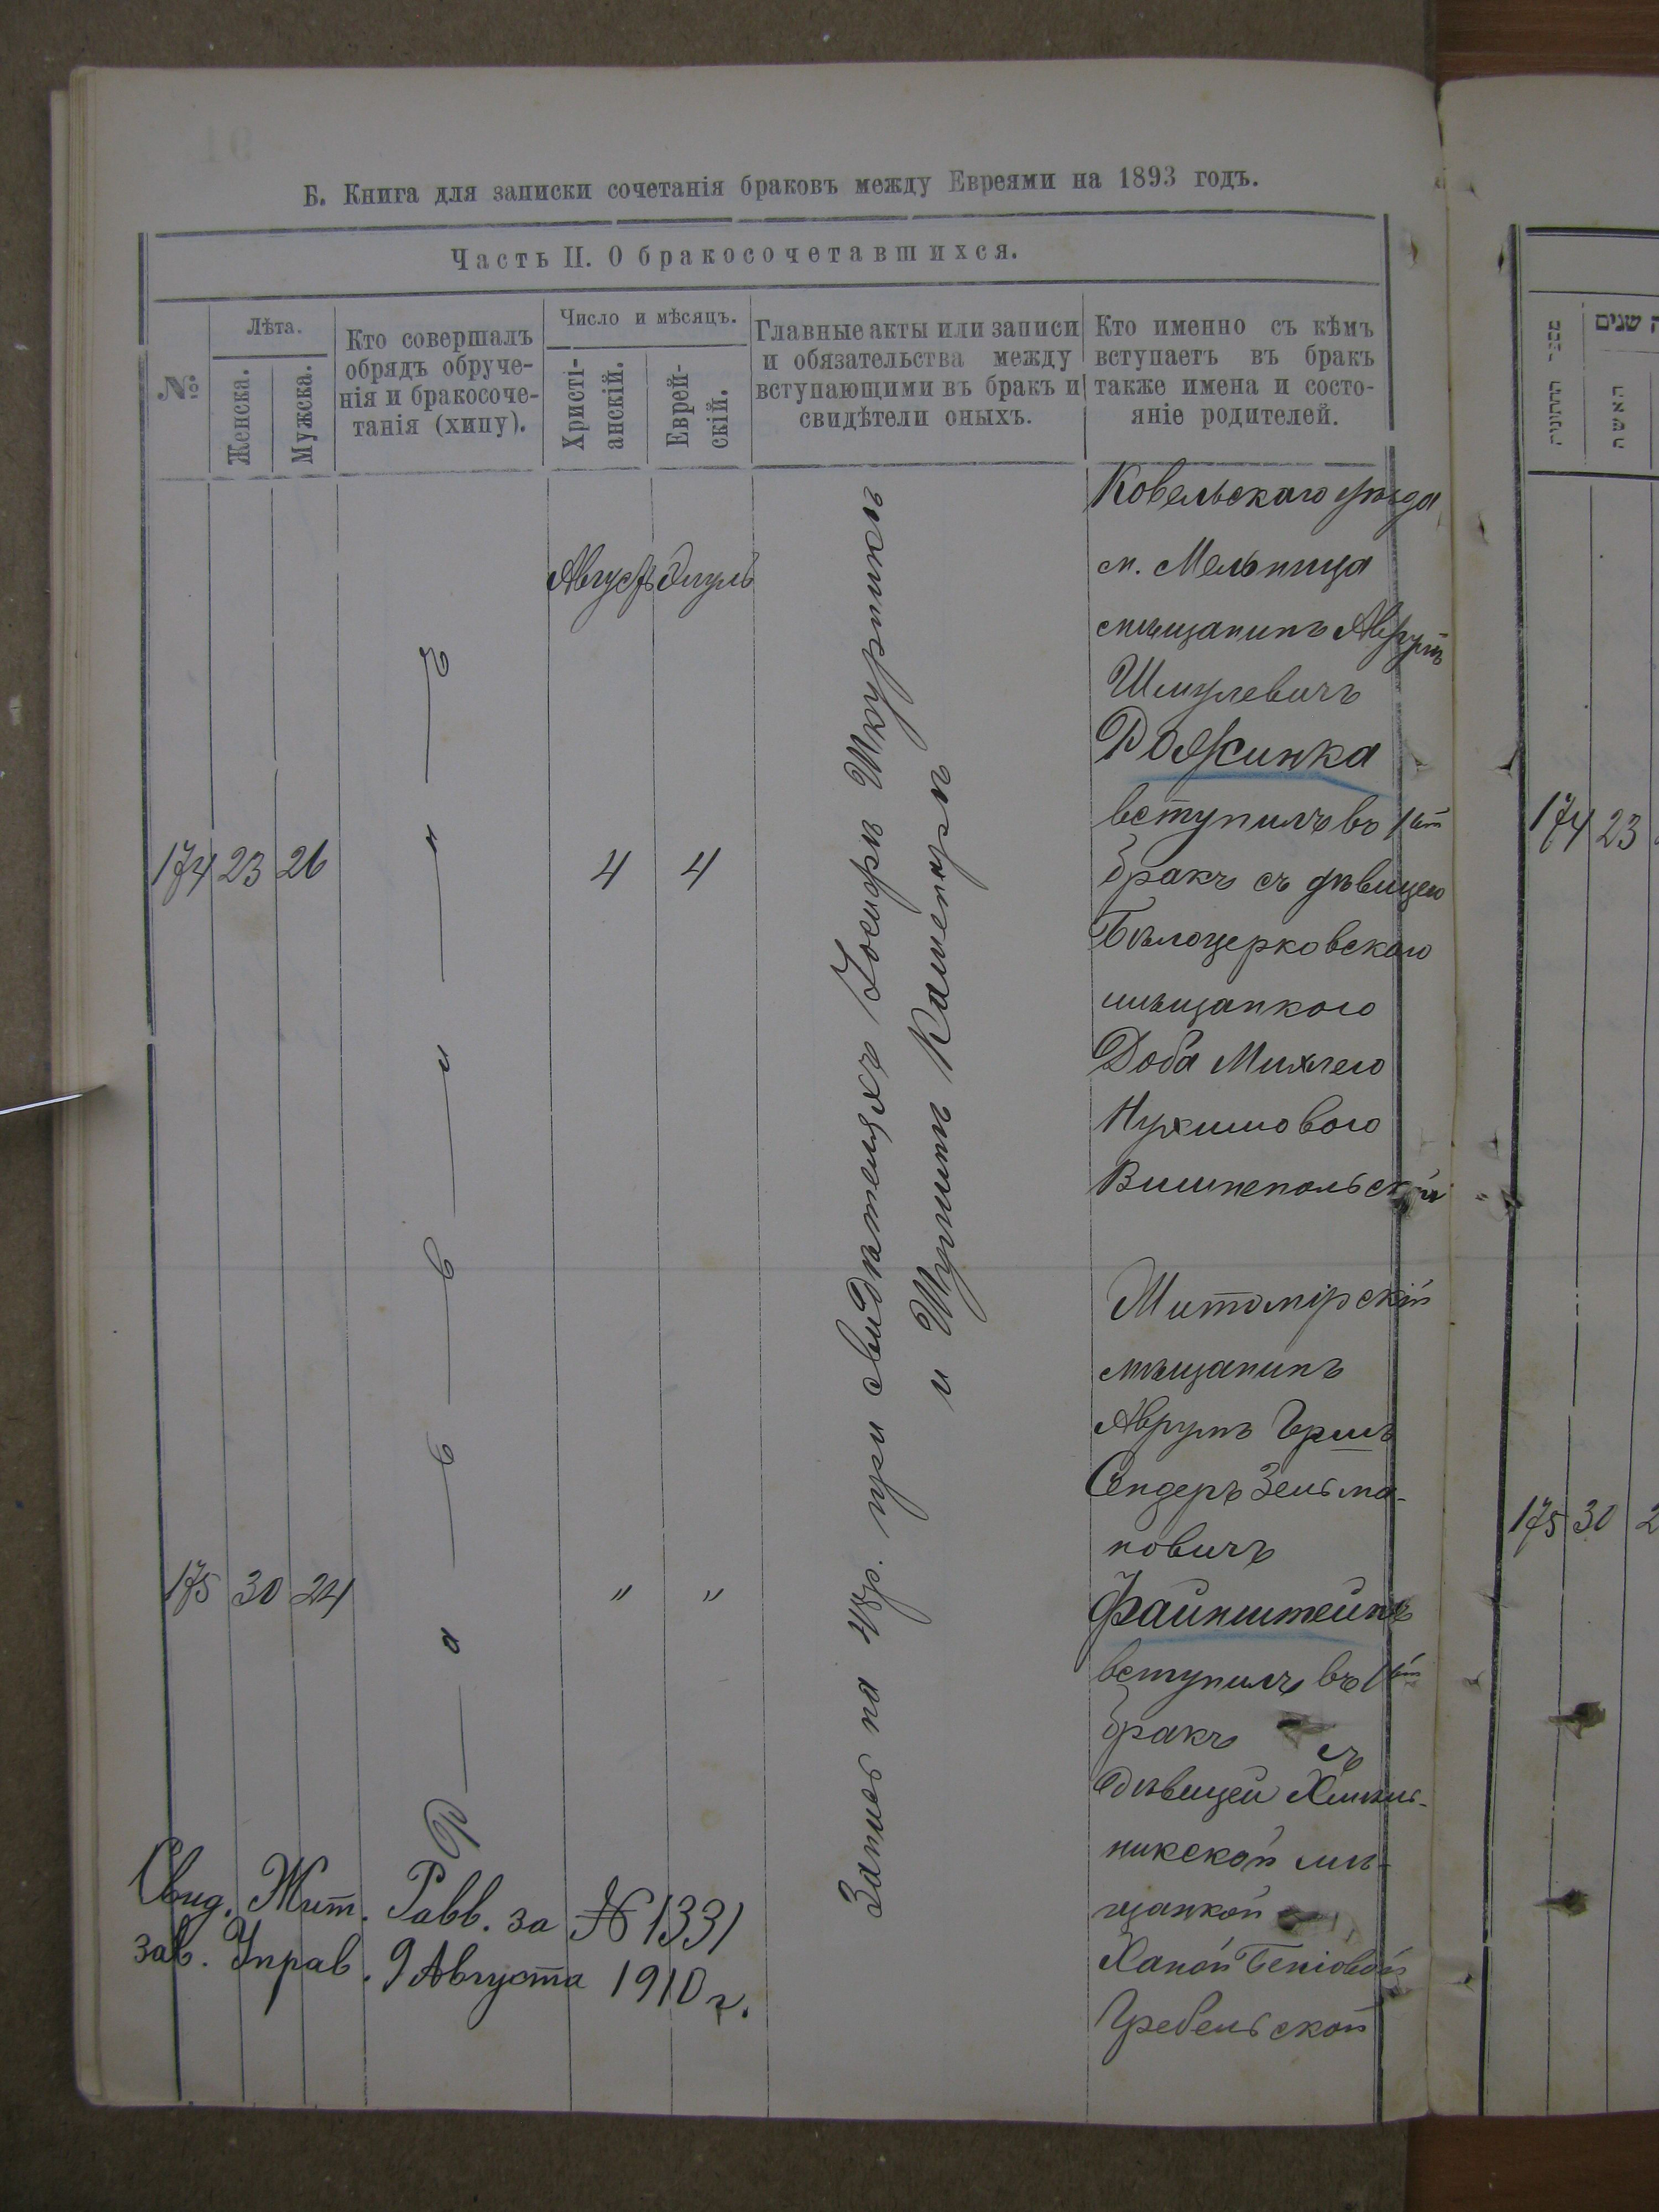 Б. Книга для записки сочетанія браковъ между Евреями на 1893 годъ.
Часть II. О бракосочетавшихся.
№
Лѣта.
Женска.
Мужска.
Кто совершалъ
обрядъ обруче-
нія и бракосоче-
танія (хипу).
Число и мѣсяцъ.
Христі-
анскій.
Еврей-
скій.
Главные акты или записи
и обязательства между
вступающими въ бракъ и
свидѣтели оныхъ.
Кто именно съ кѣмъ
вступаетъ въ бракъ
также имена и состо-
яніе родителей.
Августъ Элулъ
174 23 26
4 4
Р а в в и н ъ
Запись на 48р. при свидѣтеляхъ Іосифѣ Шкурникѣ
и Шулимѣ Каменѣрѣ
Ковельскаго уѣзда
м. Мельница
мѣщанинъ Аврумъ
Шмулевичъ
Рожинка
вступилъ въ 1ый
бракъ съ дѣвицею
Бѣлоцерковскою
мѣщанкою
Доба Михлею
Нухимовою
Вишнепольской
175 30 24
" "
Житомірскій
мѣщанинъ
Аврумъ Гершъ
Сендеръ Зельма-
новичъ
Файнштейнъ
вступилъ въ 1ый
бракъ съ
дѣвицей Хмѣль-
никской мѣ-
щанкой
Ханой Беніовой
Гребельской
Свид. Жит. Равв. за № 1331
зав. Управ. 9 Августа 1910 г.
מספר החתונה
שנים
האשה
174 23
175 30 2